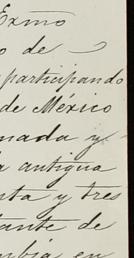 Exmo
o de
participando
de México
nada y
a antigua
nta y tres
tante de
mbia en